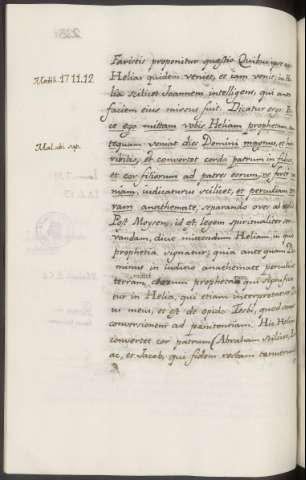 faristis proponitur quæstio Quibus
Helias quidem veniet, et iam venit, in He
Matth. 17 11.12
lia scilicet Joannem intelligens, qui ante
faciem eius missus fuit. Dicitur ergo: Ec
ce ego mittam vobis Heliam prophetam, an
Malach. sup.
tequam veniat dies Domini magnus, et hor
ribilis, et convertet corda patrum in filios,
et cor filiorum ad patres eorum, ne forte
veniam, iudicaturus scilicet, et percutiam ter
ram anathemate, separando oves ab
Post Moysen, id est legem spiritualiter
vandam, dicit mittendum Heliam, in quo
prophetia signatur; quia antequam Do
minus in iudicio anathemate percutiet
terram, chorum prophetarum qui significa
tur in Helia, qui etiam interpretatur De
us meus, et est de opido Tesbi, quod
conversionem ad pænitentiam. Hic Helias
convertet cor patrum (Abraham scilicet, Isa
ac, et Jacob, qui fidem rectam